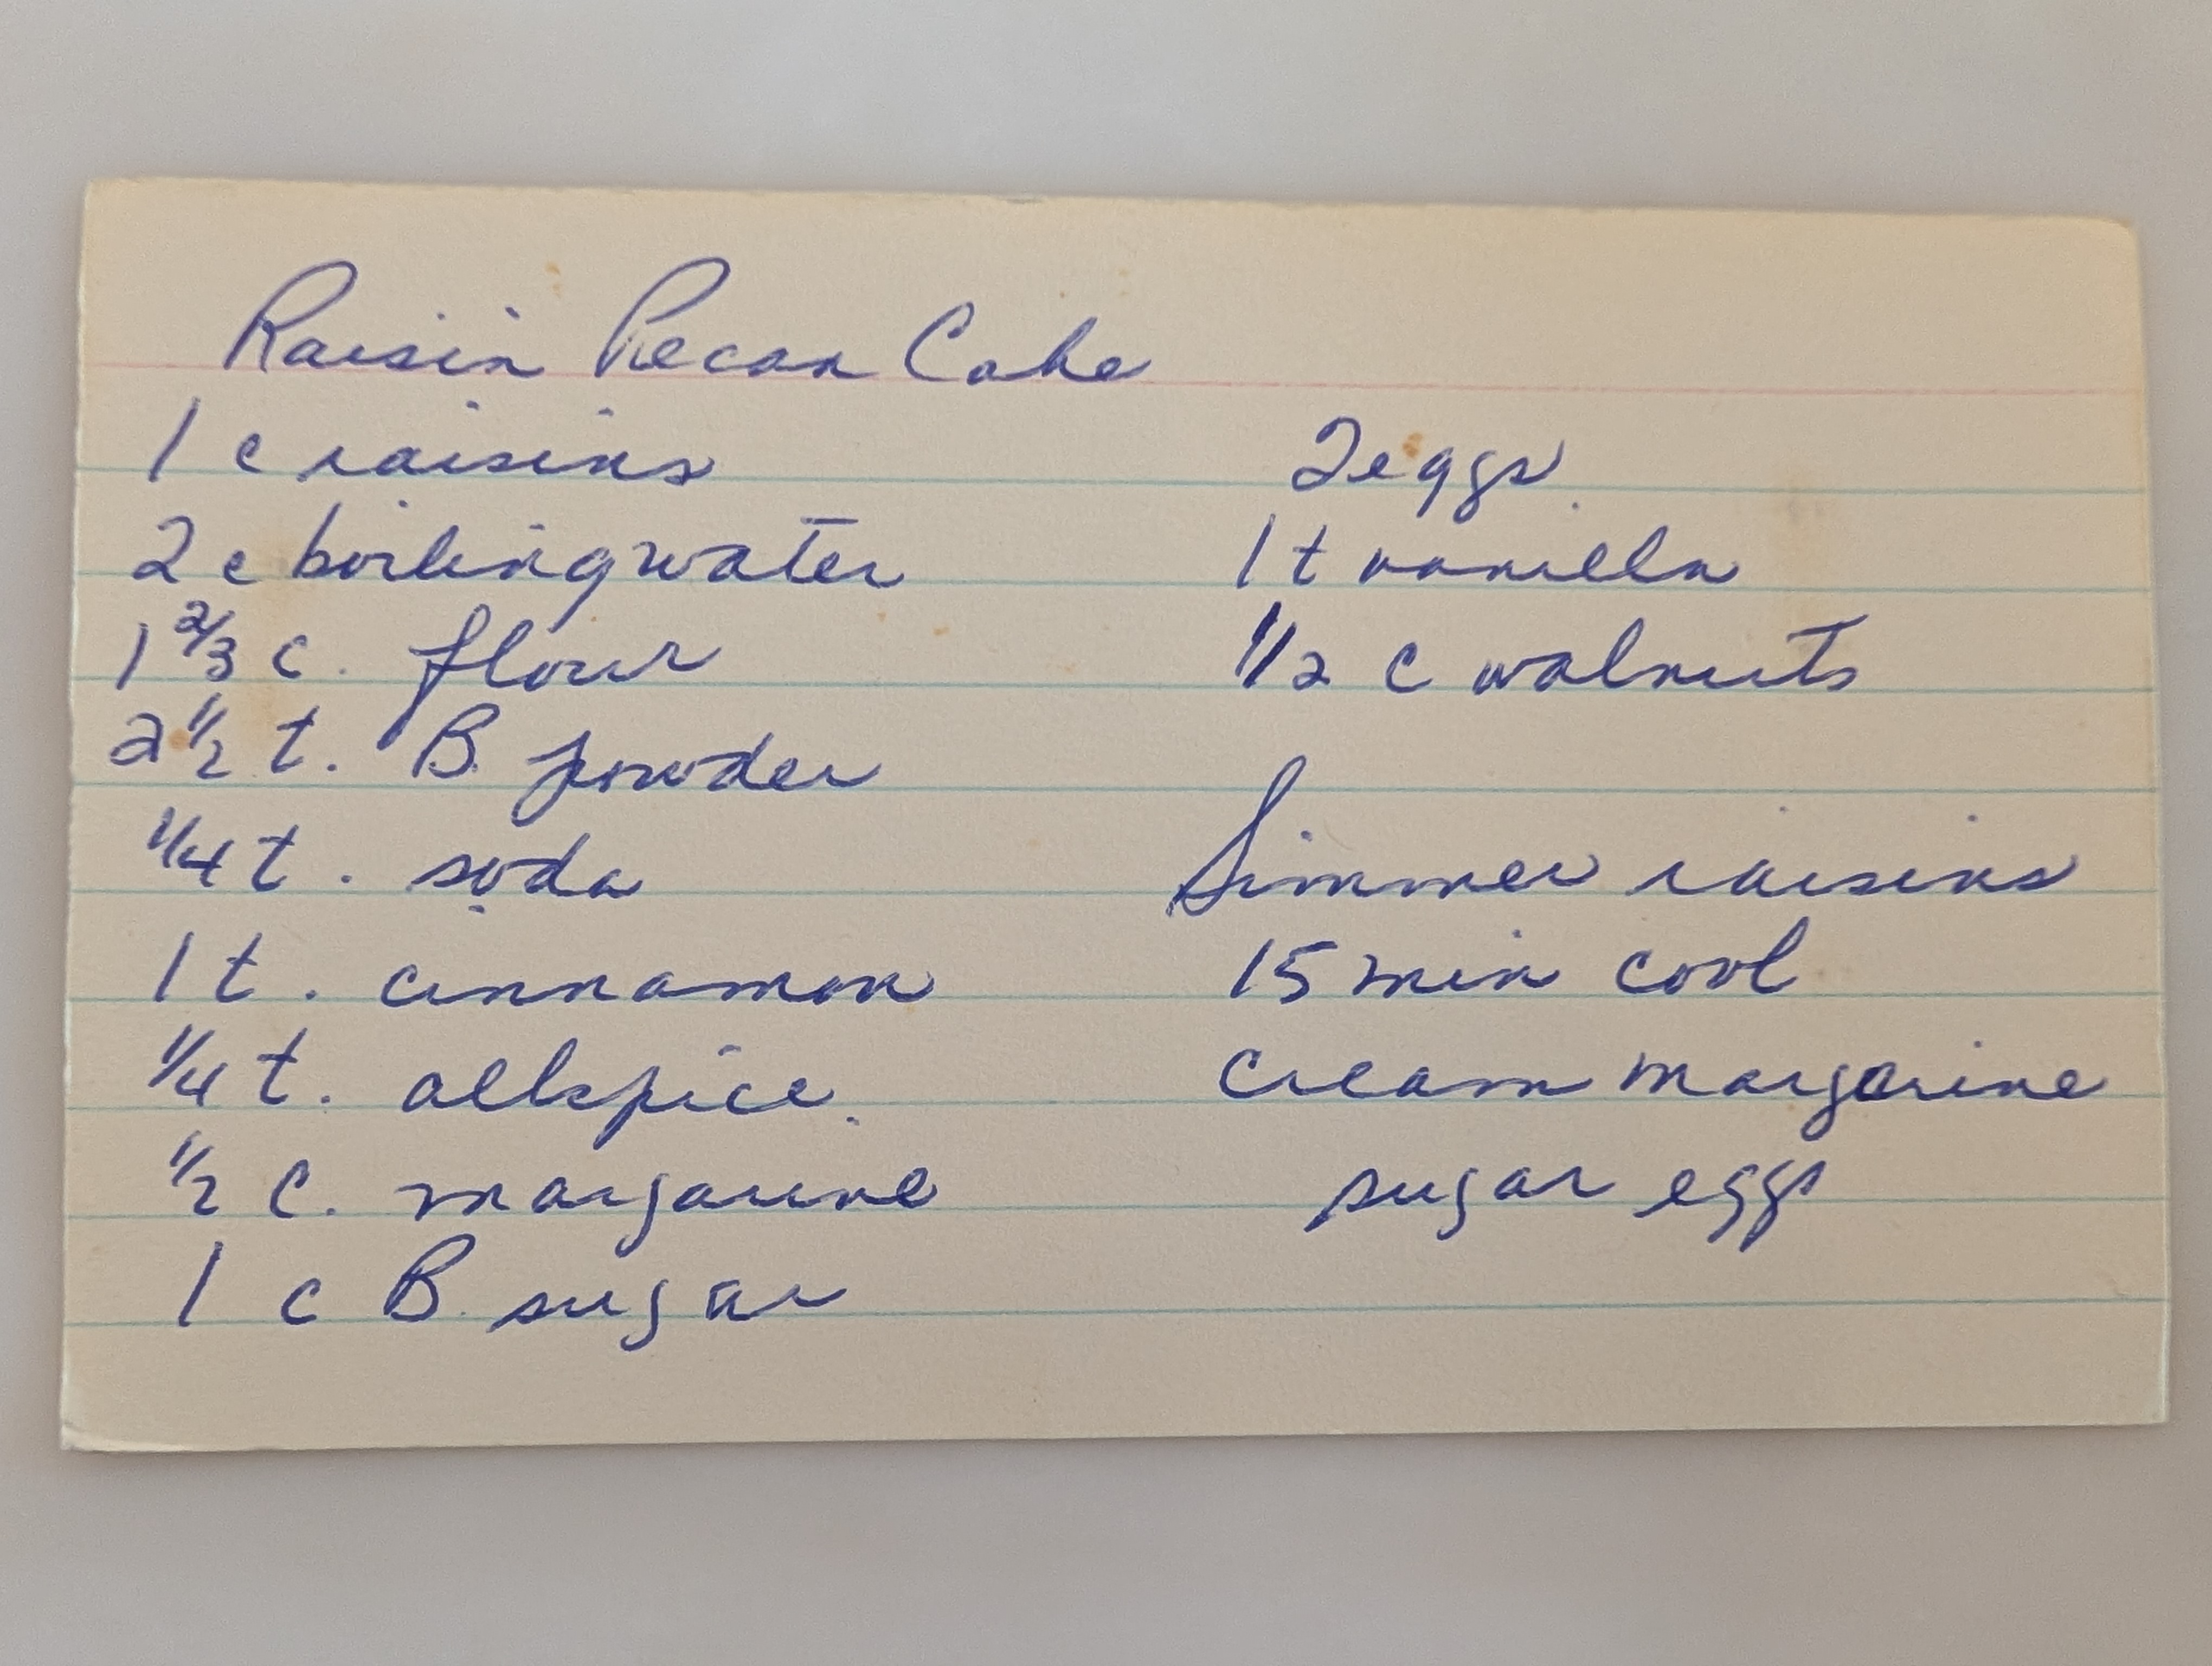 Raisin Pecan Cake
1 c raisins
2 c boiling water
1 2/3 c. flour
2 1/2 t. B. powder
1/4 t. soda
1 t. cinnamon
1/4 t. allspice.
1/2 c. margarine
1 c B. sugar
2 eggs.
1 t vanilla
1/2 c walnuts
Simmer raisins
15 min cool
cream margarine
sugar eggs